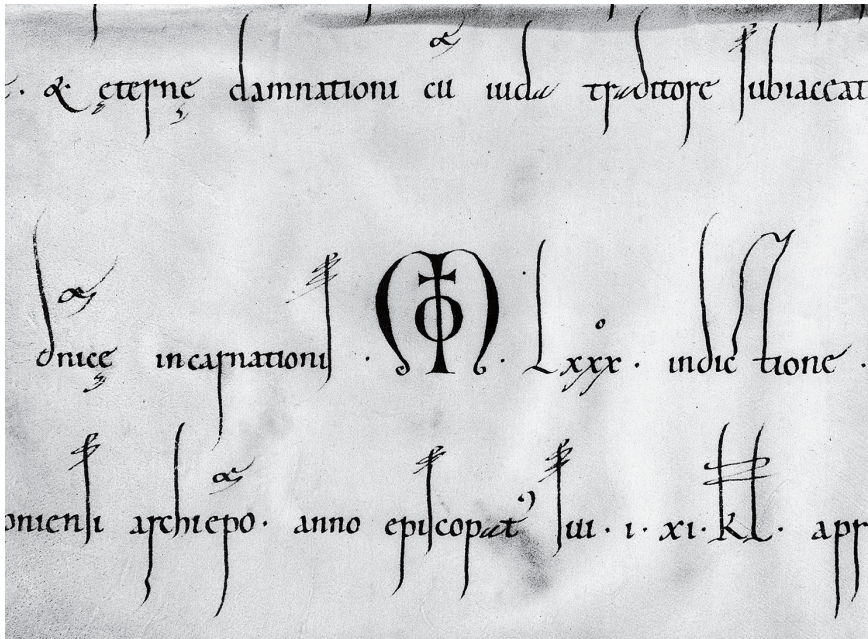 . & ęternę damnationi cū iuda traditore subiaceat
dn̄icę incarnationis . M̊ . Lxxx̊ . indictione .
oniensi archiep̄o . anno episcopat' sui . i . xi . kl̄ . apr